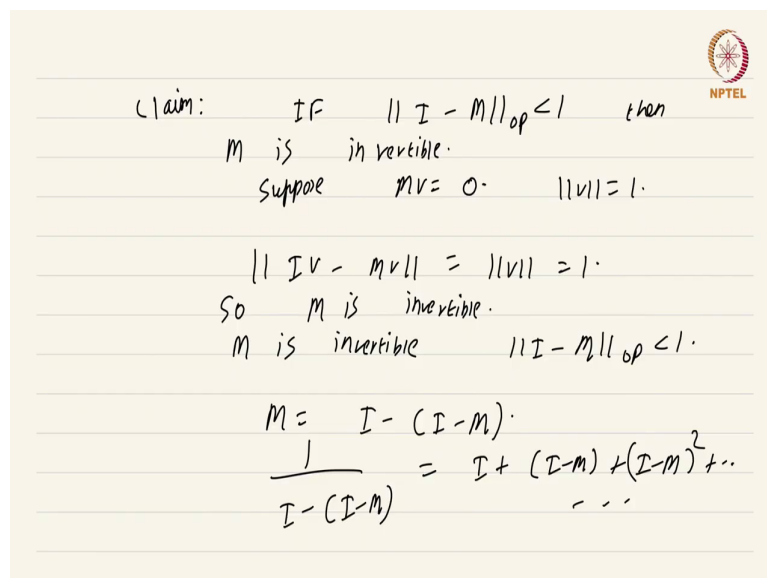 NPTEL
Claim: IF || I - M||op < 1 then
M is invertible.
Suppose MV = 0. ||V|| = 1.
|| IV - MV|| = ||V|| = 1.
So M is invertible.
M is invertible ||I - M||op < 1.
M = I - (I-M).
1
= I + (I-M) + (I-M)² + ..
I - (I-M)
- . .